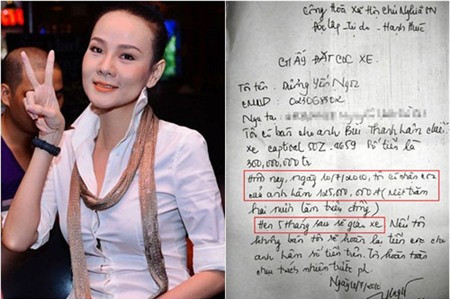 Cộng Hòa Xã Hội Chủ Nghĩa VN
Độc Lập, Tự do - Hạnh Phúc
GIẤY ĐẶT CỌC XE
Tôi tên: Dương Yến Ngọc
CMND:
Ngụ tại:
Tôi có bán cho anh Bùi Thanh Hân chiếc
xe captical 50Z - 4659 số tiền là
360,000,000 tr
Hôm nay, ngày 10/7/2010, tôi có nhận cọc
của anh Hân 125,000,000 đ (Một trăm
hai mươi lăm triệu đồng)
Hẹn 5 tháng sau sẽ giao xe Nếu tôi
không bán tôi sẽ hoàn lại tiền cọc cho
anh Hân số tiền trên. Tôi hoàn toàn
chịu trách nhiệm trước pl.